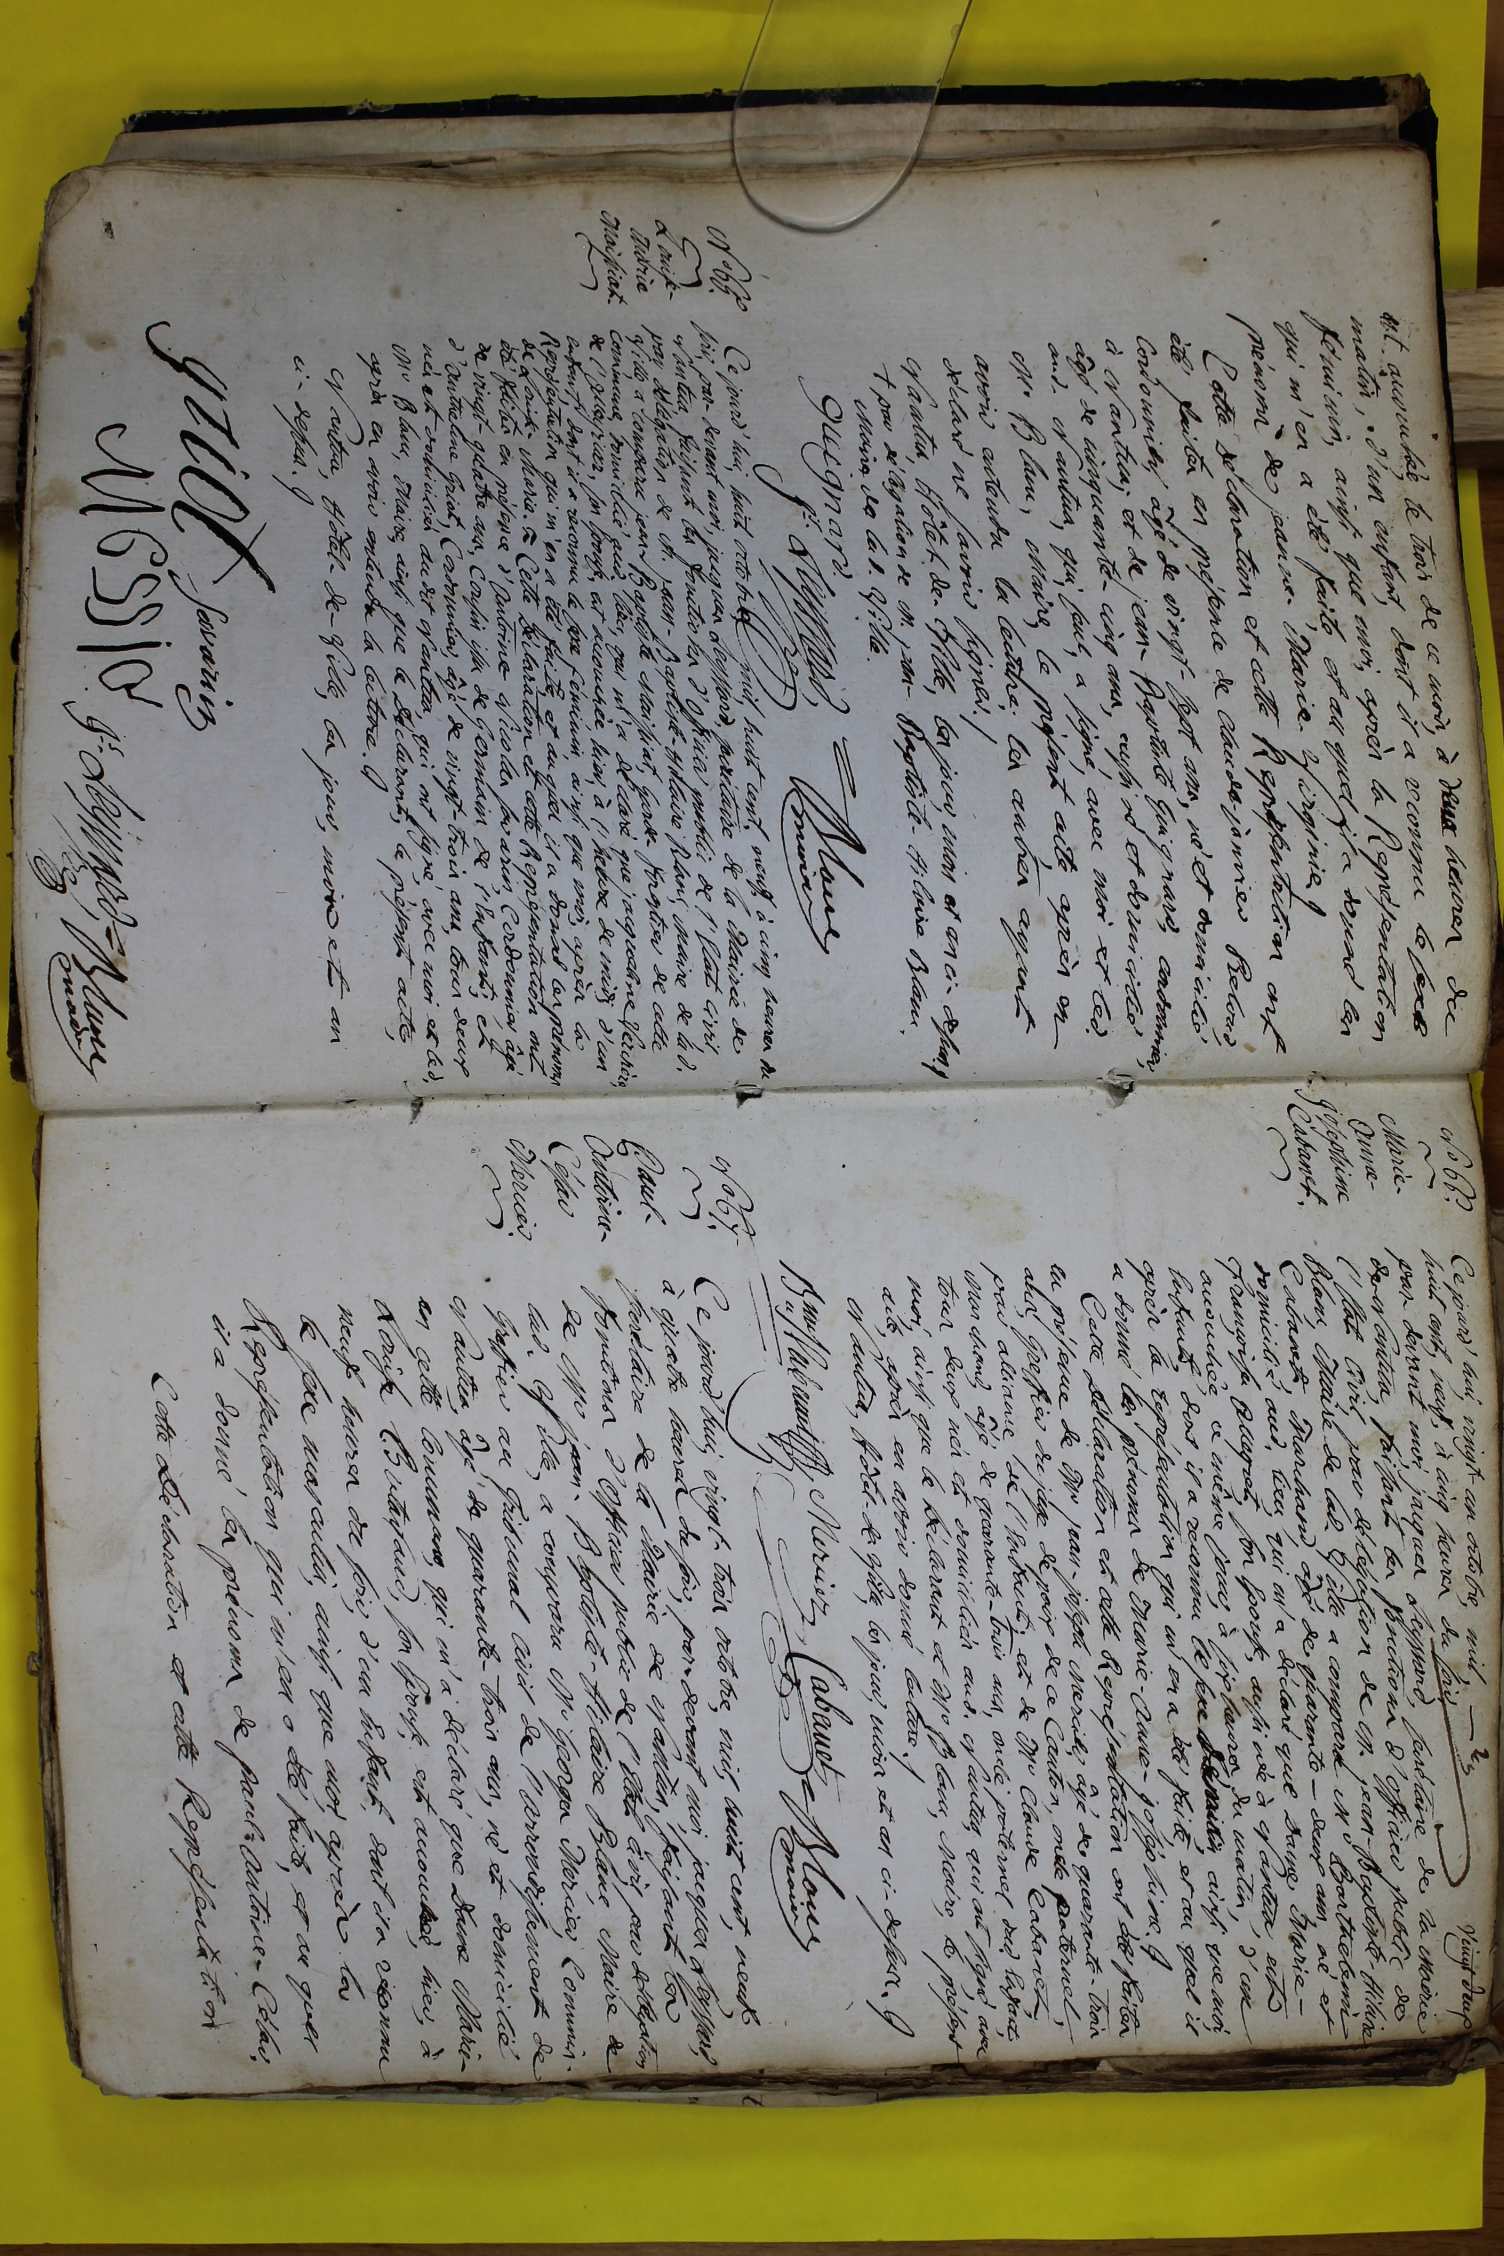 est accouchée le trois de ce mois, à deux heures du
matin, d'un enfant, dont il a reconnu le sexe
féminin, ainsi que moi, après la Représentation
qui m'en a été faite et au quel il a donné les
prénoms de jeanne-Marie-Virginie.
Cette déclaration et cette Représentation ont
été faites en présence de claude-janvier Beloud,
Cordonnier, âgé de vingt-sept ans, né et domicilié
à Nantua; et de jean-Baptiste Guignard, cordonnier,
âgé de cinquante-cinq ans, aussi né et domicilié
aud. Nantua, qui, seul, a signé, avec moi et led.
Mr. Blanc, Maire, le présent acte, après en
avoir entendu la lecture; les autres ayant
déclaré ne savoir signer.
Nantua, Hôtel-de-Ville, les jour, mois et an ci-dessus.
+ par délégation de m. jean-Baptiste-hilaire Blanc,
Maire de lad. Ville.
guignard
Blanc
maire
No 65.
Louise-
Marie
Maissiat.
Ce jourd'hui, huit octobre, mil, huit cent, neuf, à cinq heures du
soir, par-devant moi, jacques secrétaire de la Mairie de
Nantua, faisant les fonctions d'officier public de l'Etat civil,
par délégation de M. jean-Baptiste-hilaire Blanc, maire de lad.
Ville a comparu jean-Baptiste Maissiat, de cette
commune, domicilié aud. lieu, qui m'a déclaré que jacqueline
son épouse, est accouchée, hier, à l'heure de midi, d'un
enfant, dont il a reconnu le sexe féminin, ainsi que moi, après la
Représentation qui m'en a été faite, et auquel il a donné les prénoms
de Louise-Marie. Cette déclaration et cette Représentation ont
été faites en présence d'Antoine Nicolas savarin, Cordonnier, âgé
de vingt-quatre ans, Cousin de Germain de l'Enfant; et
d'Anthelme Guiot, Cordonnier, âgé de vingt-trois ans, tous deux
nés et domiciliés audit Nantua, qui ont signé, avec moi et led.
Mr. Blanc, Maire, ainsi que le déclarant, le présent acte,
après en avoir entendu la lecture.
Nantua, Hôtel-de-Ville, les jour, mois et an
ci-dessus.
guiot
savarin
Blanc
maire
Vingt deux
No 66.
Marie-
Anne-
joséphine
Cabanet.
Ce jourd'hui, vingt-un octobre, mil,
huit cent, neuf, à cinq heures du soir,
par devant moi, jacques secrétaire de la Mairie
de Nantua, faisant les fonctions d'officier public de
l'Etat civil, par délégation de M. jean-Baptiste hilaire
Blanc, Maire de lad. Ville a comparu M. Barthelemi
Cabanet, Marchand, âgé de quarante-deux ans, né et
domicilié, aud. lieu, qui m'a déclaré que Dame Marie-
françoise son épouse, aussi née à Nantua, est
accouchée, ce même jour, à six heures du matin, d'un
Enfant, dont il a reconnu le sexe féminin ainsi que moi
après la représentation qui m'en a été faite, et au quel il
a donné les prénoms de Marie-Anne-joséphine.
Cette déclaration et cette Représentation ont été faites
en présence de Mr jean-joseph Mercier, âgé de quarante-trois
ans, Greffier du juge de paix de ce Canton, oncle paternel,
par alliance, de l'Enfant; et de Mr Claude Cabanet,
Marchand, âgé de quarante-trois ans, oncle paternel dud. Enfant,
tous deux nés et domiciliés aud. Nantua, qui ont signé, avec
moi, ainsi que le déclarant et Mr Blanc, Maire, le présent
acte, après en avoir donné lecture.
Nantua, Hôtel-de-Ville, les jour, mois et an ci-dessus.
Mercier Cabanet Blanc
maire
No 67.
Paul-
Antoine-
César
Mercier.
Ce jourd'hui, vingt-trois octobre, mil, huit cent, neuf,
à quatre heures du soir, par-devant moi jacques
secrétaire de la Mairie de Nantua, faisant les
fonctions d'officier public de l'Etat civil, par délégation
de Mr jean-Baptiste-Hilaire Blanc, Maire de
lad. Ville, a comparu Mr George Mercier, Commis-
Greffier au Tribunal civil de l'arrondissement de
Nantua, âgé de quarante-trois ans, né et domicilié
en cette Commune, qui m'a déclaré que Dame Marie-
Louise son épouse, est accouchée, hier, à
neuf heures du soir, d'un Enfant, dont il a reconnu
le sexe masculin, ainsi que moi, après la
Représentation qui m'en a été faite, et au quel
il a donné les prénoms de paul-antoine-César.
Cette déclaration et cette Représentation